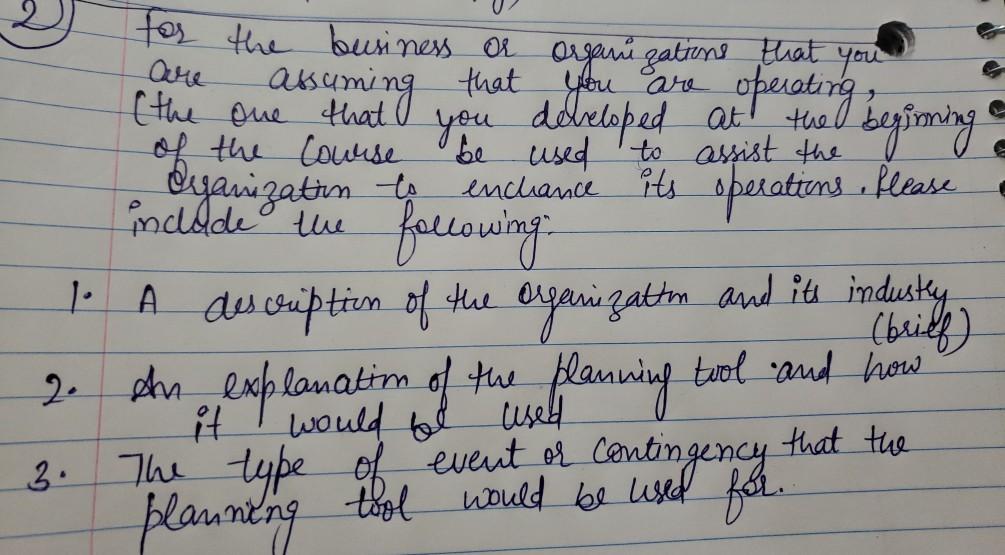 2)
for the business or organizations that you
are assuming that you are operating,
(the one that you developed at the beginning
of the course be used to assist the
Organization to enchance its operations. Please
include the following:
1. A description of the organization and its industry
(brief)
2. An explanation of the planning tool and how
it would be used
3. The type of event or contingency that the
planning tool would be used for.